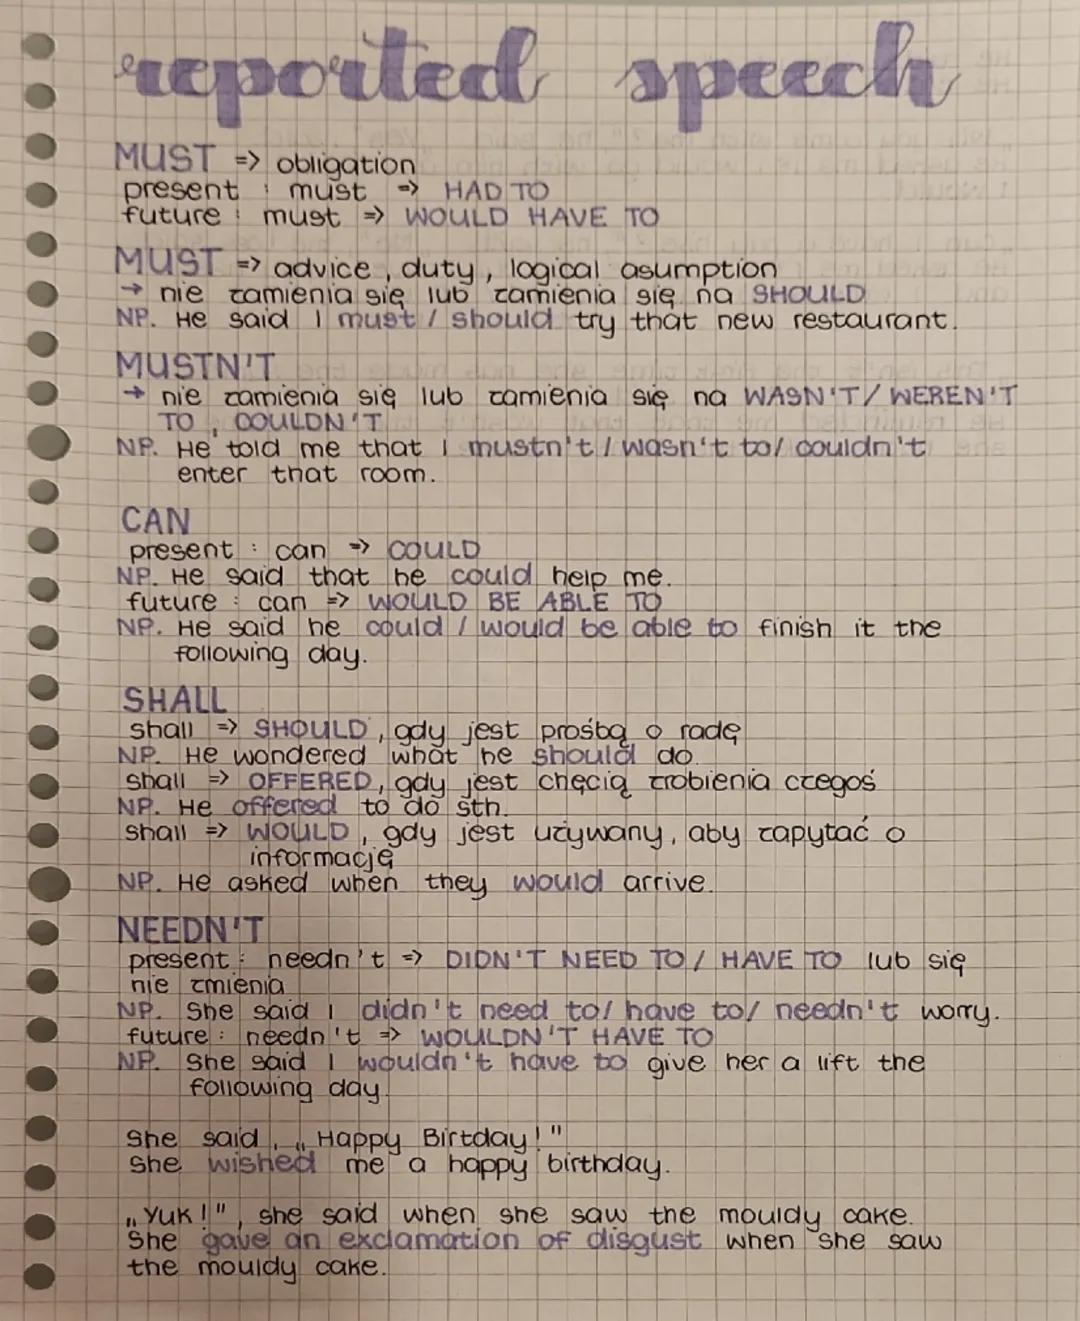 reported speech
MUST => obligation
present : must => HAD TO
future : must => WOULD HAVE TO
MUST => advice, duty, logical asumption
→ nie zamienia się lub zamienia się na SHOULD
NP. He said I must / should try that new restaurant.
MUSTN'T
→ nie zamienia się lub zamienia się na WASN'T / WEREN'T
TO, COULDN'T
NP. He told me that I mustn't / wasn't to / couldn't
enter that room.
CAN
present : can => COULD
NP. He said that he could help me.
future : can => WOULD BE ABLE TO
NP. He said he could / would be able to finish it the
following day.
SHALL
shall => SHOULD, gdy jest prośbą o radę
NP. He wondered what he should do.
shall => OFFERED, gdy jest chęcią zrobienia czegoś
NP. He offered to do sth.
shall => WOULD, gdy jest używany, aby zapytać o
informację
NP. He asked when they would arrive.
NEEDN'T
present : needn't => DIDN'T NEED TO / HAVE TO lub się
nie zmienia
NP. She said I didn't need to/ have to/ needn't worry.
future : needn't => WOULDN'T HAVE TO
NP. She said I wouldn't have to give her a lift the
following day.
She said, „Happy Birtday!"
She wished me a happy birthday.
„Yuk!", she said when she saw the mouldy cake.
She gave an exclamation of disgust when she saw
the mouldy cake.